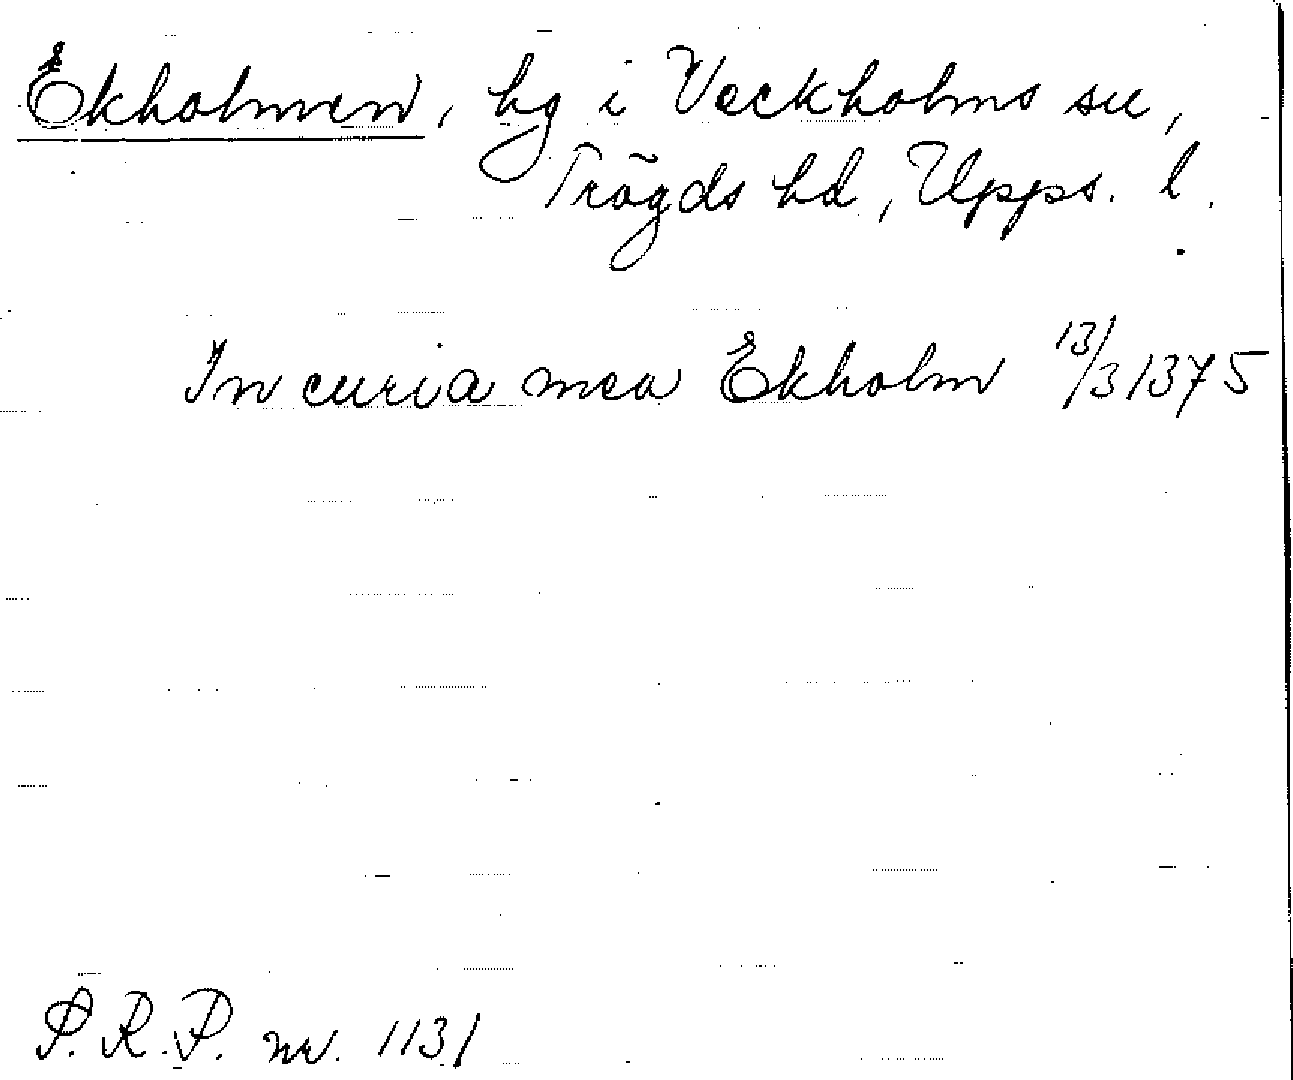 Ekholmen, hg i Veckholms sn,
Trögds hd, Upps. l.
In curia mea Ekholm 13/3 1375
S.R.P. nr. 1131